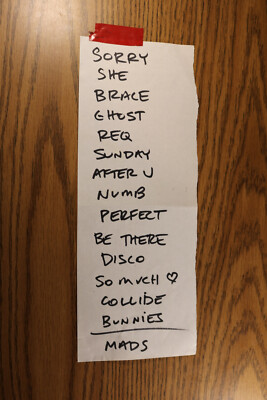 SORRY
SHE
BRACE
GHOST
REQ
SUNDAY
AFTER U
NUMB
PERFECT
BE THERE
DISCO
SO MUCH ♡
COLLIDE
BUNNIES
MADS